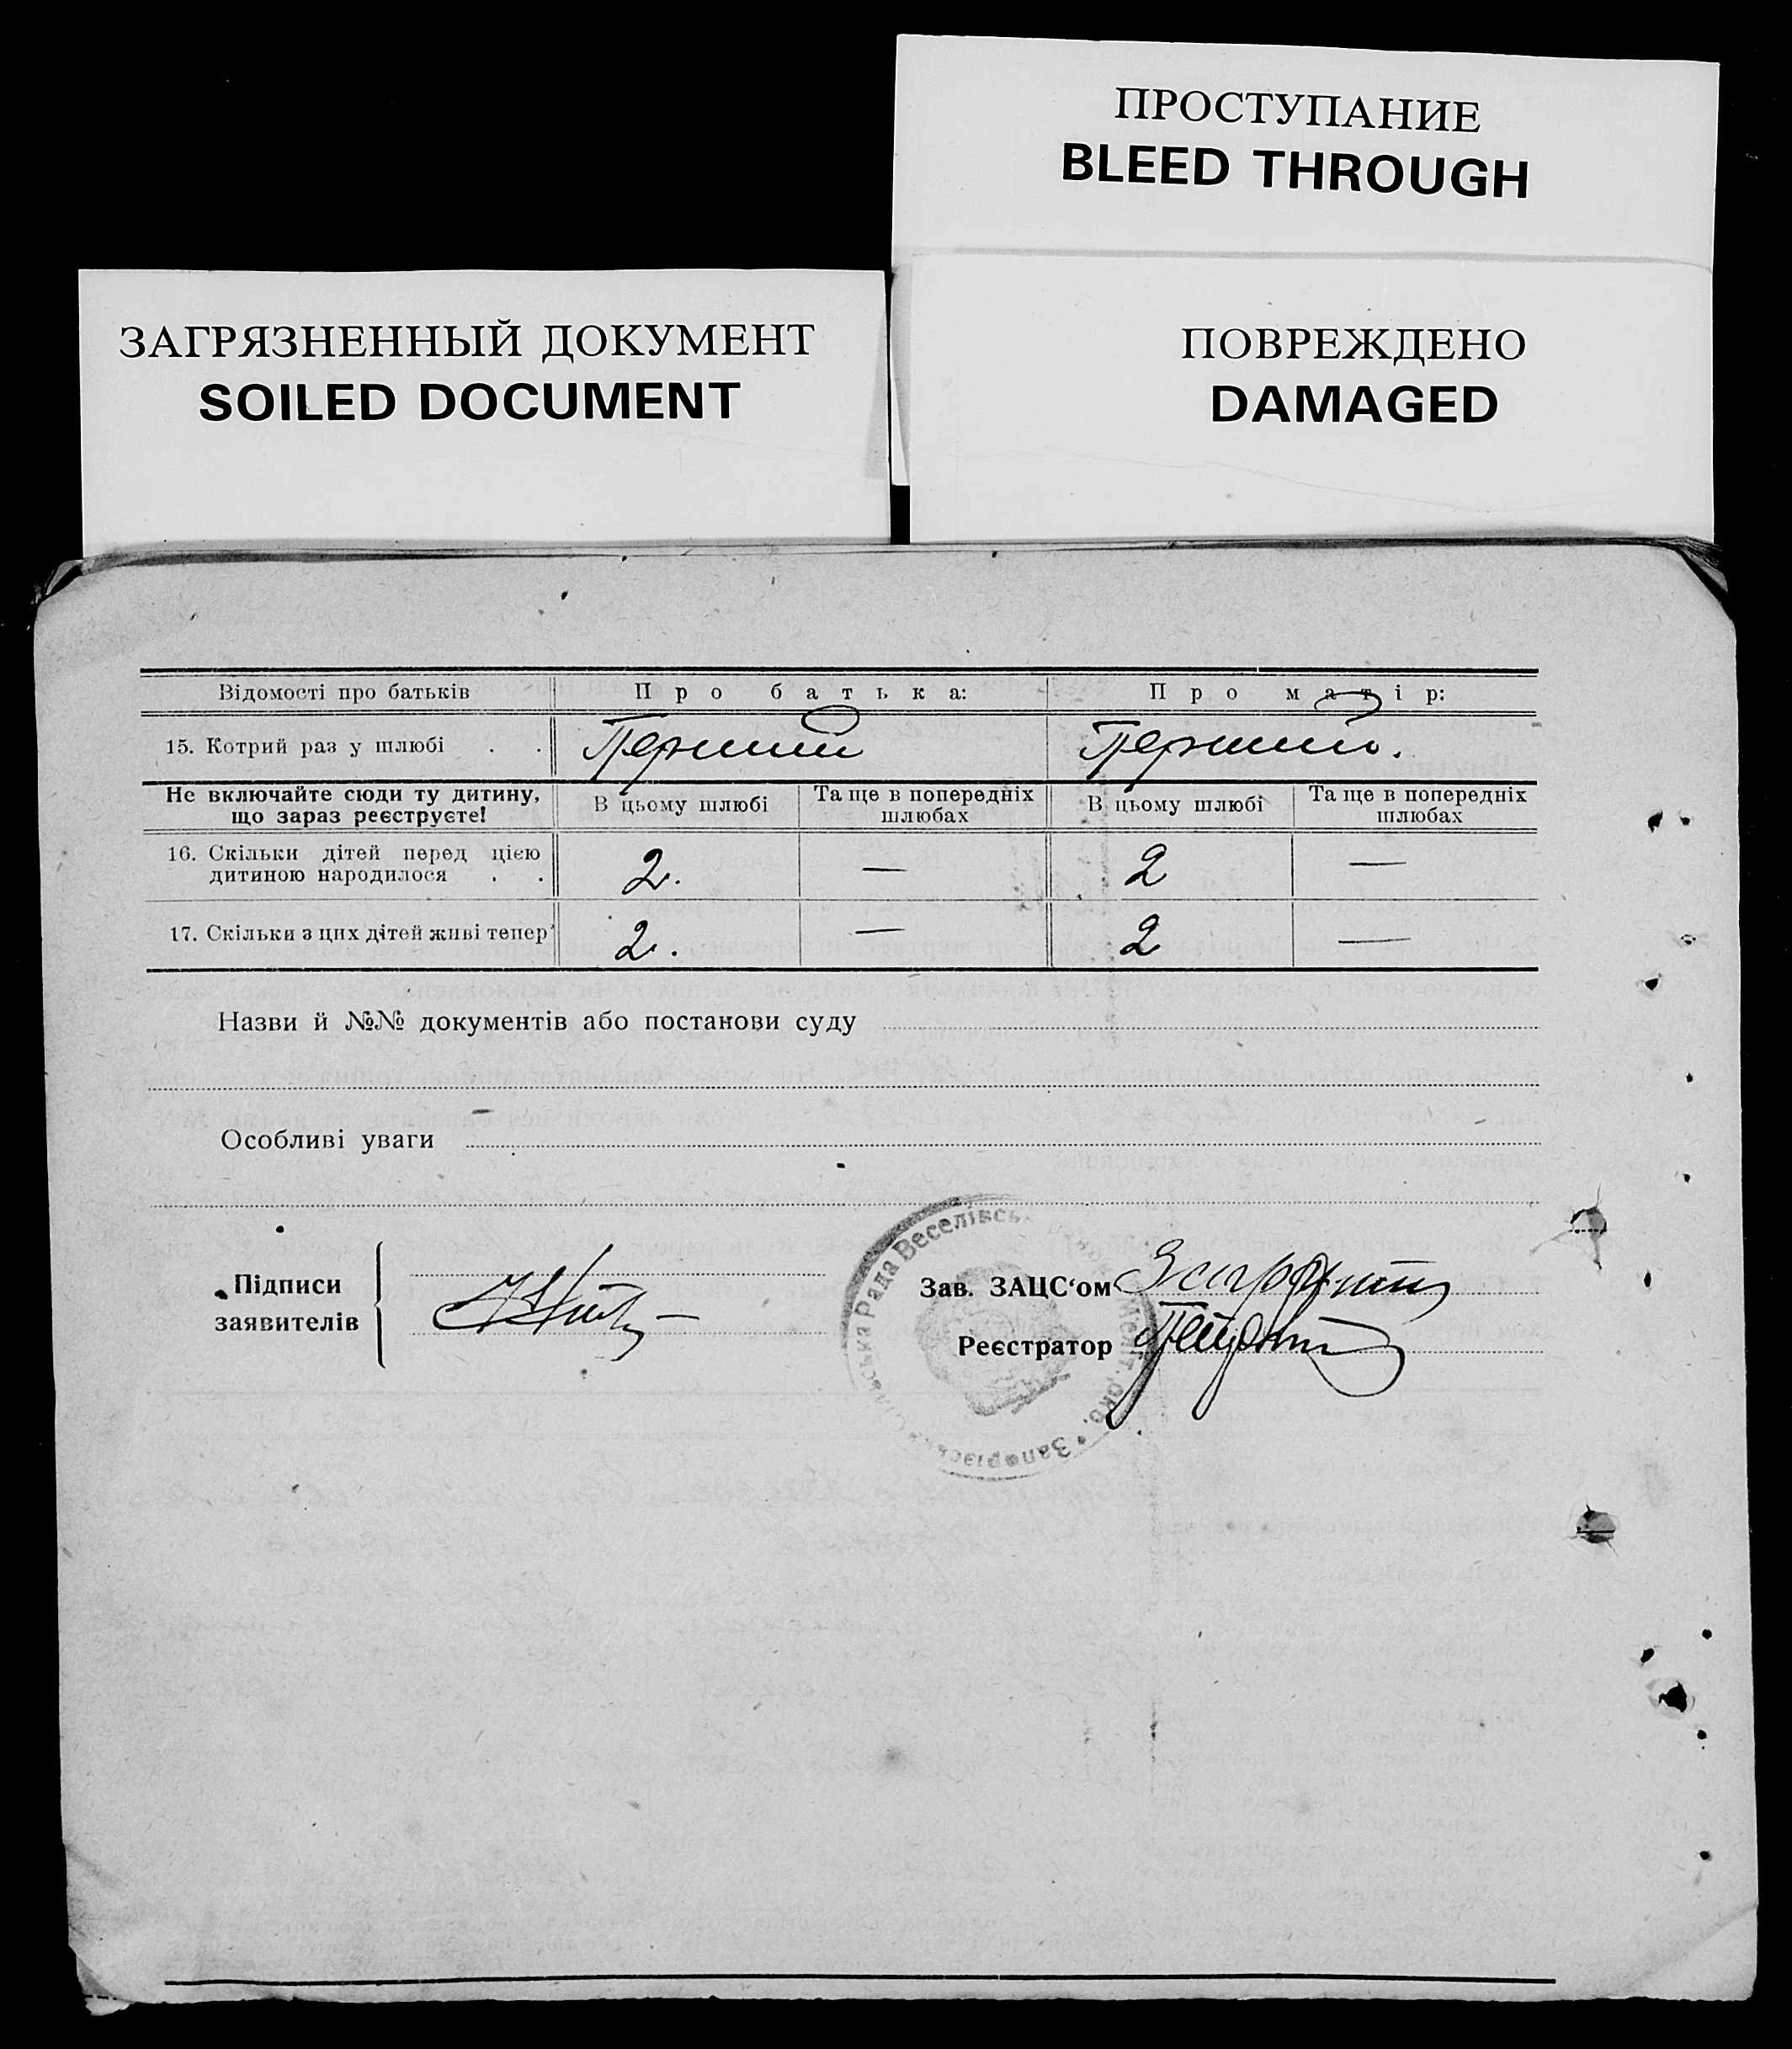 ПРОСТУПАНИЕ
BLEED THROUGH
ЗАГРЯЗНЕННЫЙ ДОКУМЕНТ
SOILED DOCUMENT
ПОВРЕЖДЕНО
DAMAGED
Відомості про батьків Про батька: Про матір:
15. Котрий раз у шлюбі . . Перший Перший.
Не включайте сюди ту дитину, що зараз реєструєте! В цьому шлюбі Та ще в попередніх шлюбах В цьому шлюбі Та ще в попередніх шлюбах
16. Скільки дітей перед цією
дитиною народилося . . 2. — 2 —
17. Скільки з цих дітей живі тепер 2. — 2 —
Назви й №№ документів або постанови суду
Особливі уваги
Підписи
заявителів
Зав. ЗАЦС‘ом
Реєстратор
Рада Веселівсь
окр. • Запорізс